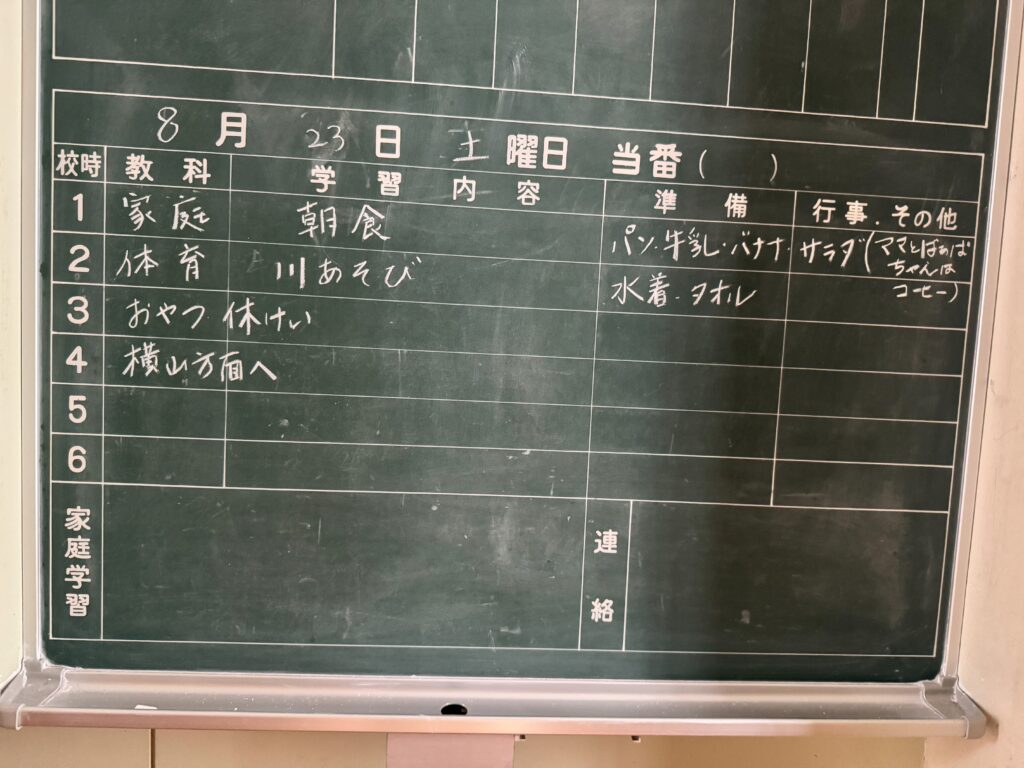 8月 23日 土曜日 当番( )
校時 教科 学習内容 準備 行事.その他
1 家庭 朝食 パン・牛乳・バナナ・サラダ(ママとばぁばちゃんはコーヒー)
2 体育 川あそび 水着・タオル
3 おやつ 休けい
4 横山方面へ
5
6
家庭学習 連絡